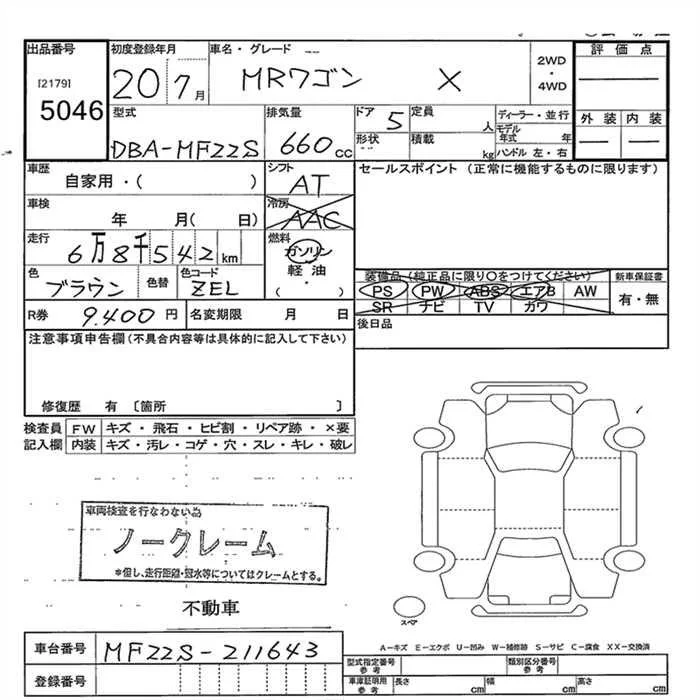 出品番号
[2179]
5046
初度登録年月
20 7月
車名・グレード
MRワゴン X
2WD
・
4WD
評価点
外装 内装
型式
DBA-MF22S
排気量
660cc
ドア 5
形状
定員 人
積載 kg
ディーラー・並行
モデル年式 年
ハンドル 左・右
車歴
自家用・( )
シフト
AT
セールスポイント (正常に機能するものに限ります)
車検
年 月( 日)
冷房
AAC
走行
6万8千542km
燃料
ガソリン
軽油
・
( )
色
ブラウン
色替
色コード
ZEL
装備品(純正品に限り○をつけてください)
PS PW ABS エアB AW
SR ナビ TV カワ
新車保証書
有・無
R券 9.400円
名変期限 月 日
後日品
注意事項申告欄(不具合内容等は具体的に記入して下さい)
修復歴 有〔箇所 〕
検査員記入欄
FW キズ・飛石・ヒビ割・リペア跡・×要
内装 キズ・汚レ・コゲ・穴・スレ・キレ・破レ
車両検査を行なわない為
ノークレーム
*但し、走行距離・冠水等についてはクレームとする。
不動車
スペア
A-キズ E-エクボ U-凹み W-補修跡 S-サビ C-腐食 XX-交換済
車台番号 MF22S-211643
登録番号
型式指定番号
参考
類別区分番号
参考
車庫証明用
参考
長さ cm
幅 cm
高さ cm